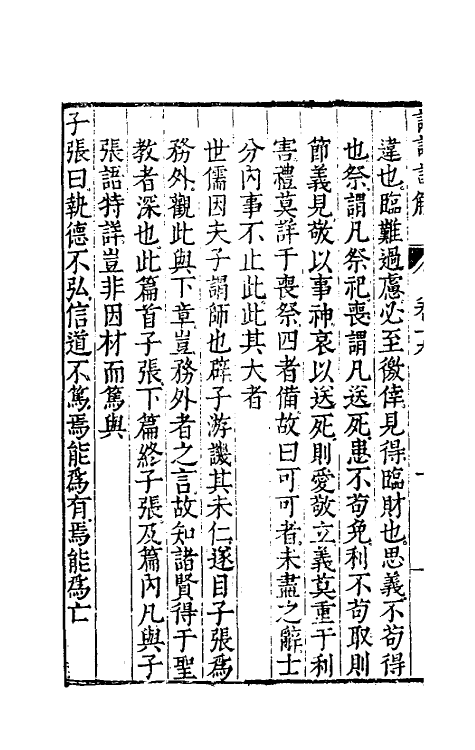 違也臨難過慮必至徼倖見得臨財也思義不茍得
也祭謂凡祭祀喪謂凡送死患不茍免利不茍取則
節義見敬以事神哀以送死則愛敬立義莫重于利
害禮莫詳于喪祭四者備故曰可可者未盡之辭士
分內事不止此此其大者
世儒因夫子謂師也辟子游譏其未仁遂目子張為
務外觀此與下章豈務外者之言故知諸賢得于聖
教者深也此篇首子張下篇終子張及篇內凡與子
張語特詳豈非因材而篤與
子張曰執德不弘信道不篤焉能為有焉能為亡